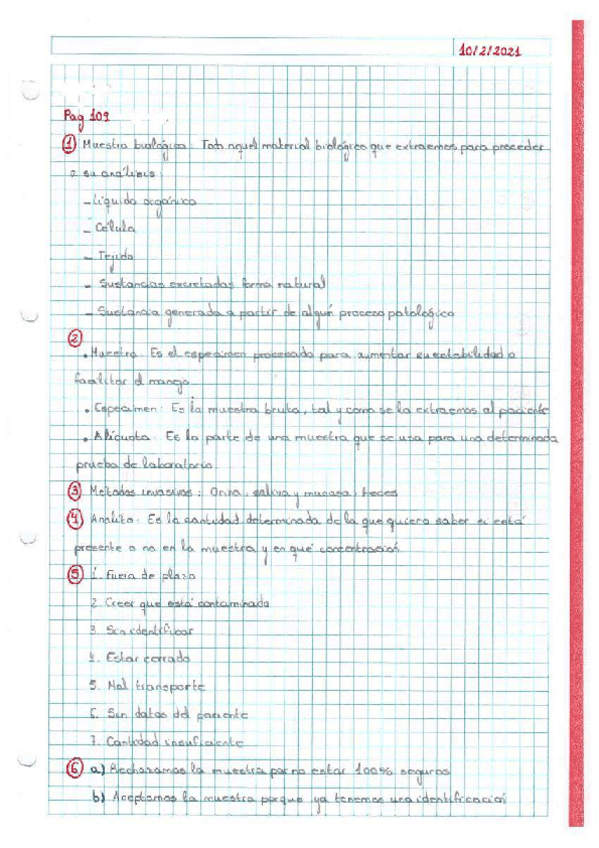 10/2/2021
Pag 109
① Muestra biológica: Todo aquel material biológico que extraemos para proceder
a su análisis:
- Líquido orgánico
- Célula
- Tejido
- Sustancias excretadas forma natural
- Sustancia generada a partir de algún proceso patológico
②
• Muestra: Es el especimen procesado para aumentar su estabilidad o
facilitar el manejo
• Especimen: Es la muestra bruta, tal y como se la extraemos al paciente
• Alícuota: Es la parte de una muestra que se usa para una determinada
prueba de laboratorio.
③ Métodos invasivos: Orina, saliva y mucosa, heces
④ Analito: Es la cantidad determinada de la que quiero saber si está
presente o no en la muestra y en qué concentración
⑤ 1. Fuera de plazo
2. Creer que está contaminada
3. Sin identificar
4. Estar cerrado
5. Mal transporte
6. Sin datos del paciente
7. Cantidad insuficiente
⑥ a) Rechazamos la muestra por no estar 100% seguros
b) Aceptamos la muestra porque ya tenemos una identificación